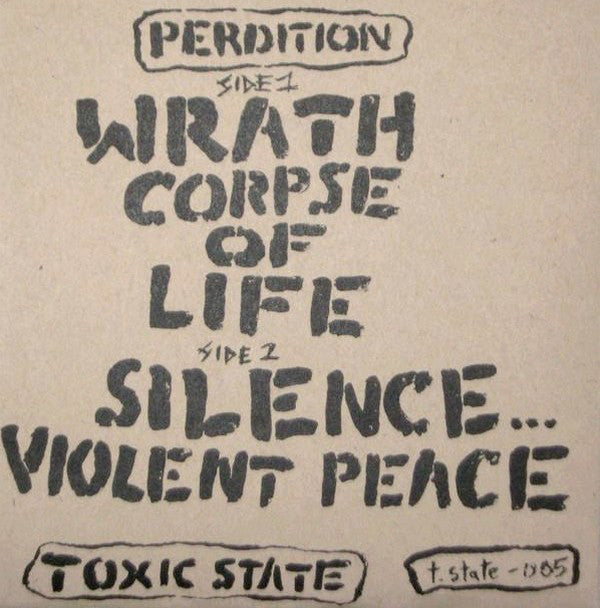 PERDITION
SIDE 1
WRATH
CORPSE
OF
LIFE
SIDE 2
SILENCE...
VIOLENT PEACE
TOXIC STATE
t. state - 005